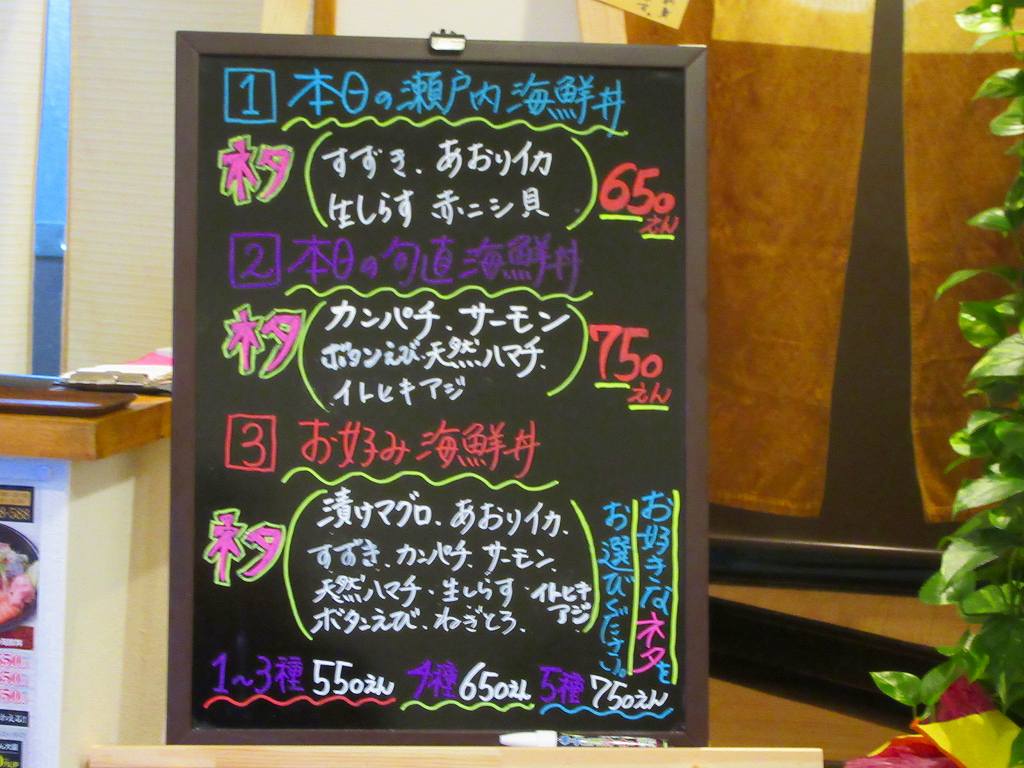 1 本日の瀬戸内海鮮丼
ネタ
すずき、あおりイカ
生しらす 赤ニシ貝
650えん
2 本日の旬直海鮮丼
ネタ
カンパチ、サーモン
ボタンえび・天然ハマチ、
イトヒキアジ
750えん
3 お好み海鮮丼
ネタ
漬けマグロ、あおりイカ、
すずき、カンパチ、サーモン、
天然ハマチ・生しらす・イトヒキアジ
ボタンえび、ねぎとろ、
お好きなネタを
お選びください。
1〜3種 550えん 4種 650えん 5種 750えん